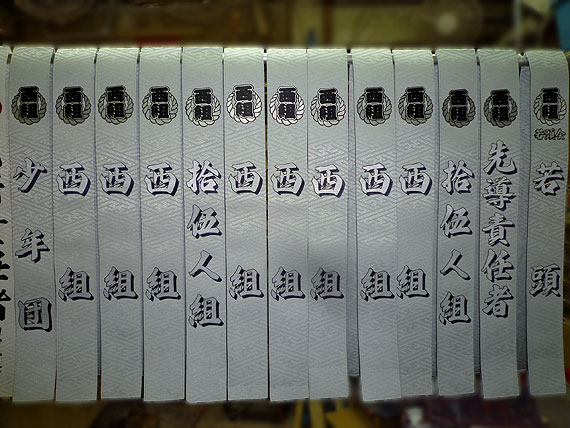 西組
若頭
西組
先導責任者
西組
拾伍人組
西組
西組
西組
西組
西組
西組
西組
西組
西組
西組
西組
拾伍人組
西組
西組
西組
西組
西組
西組
西組
少年団